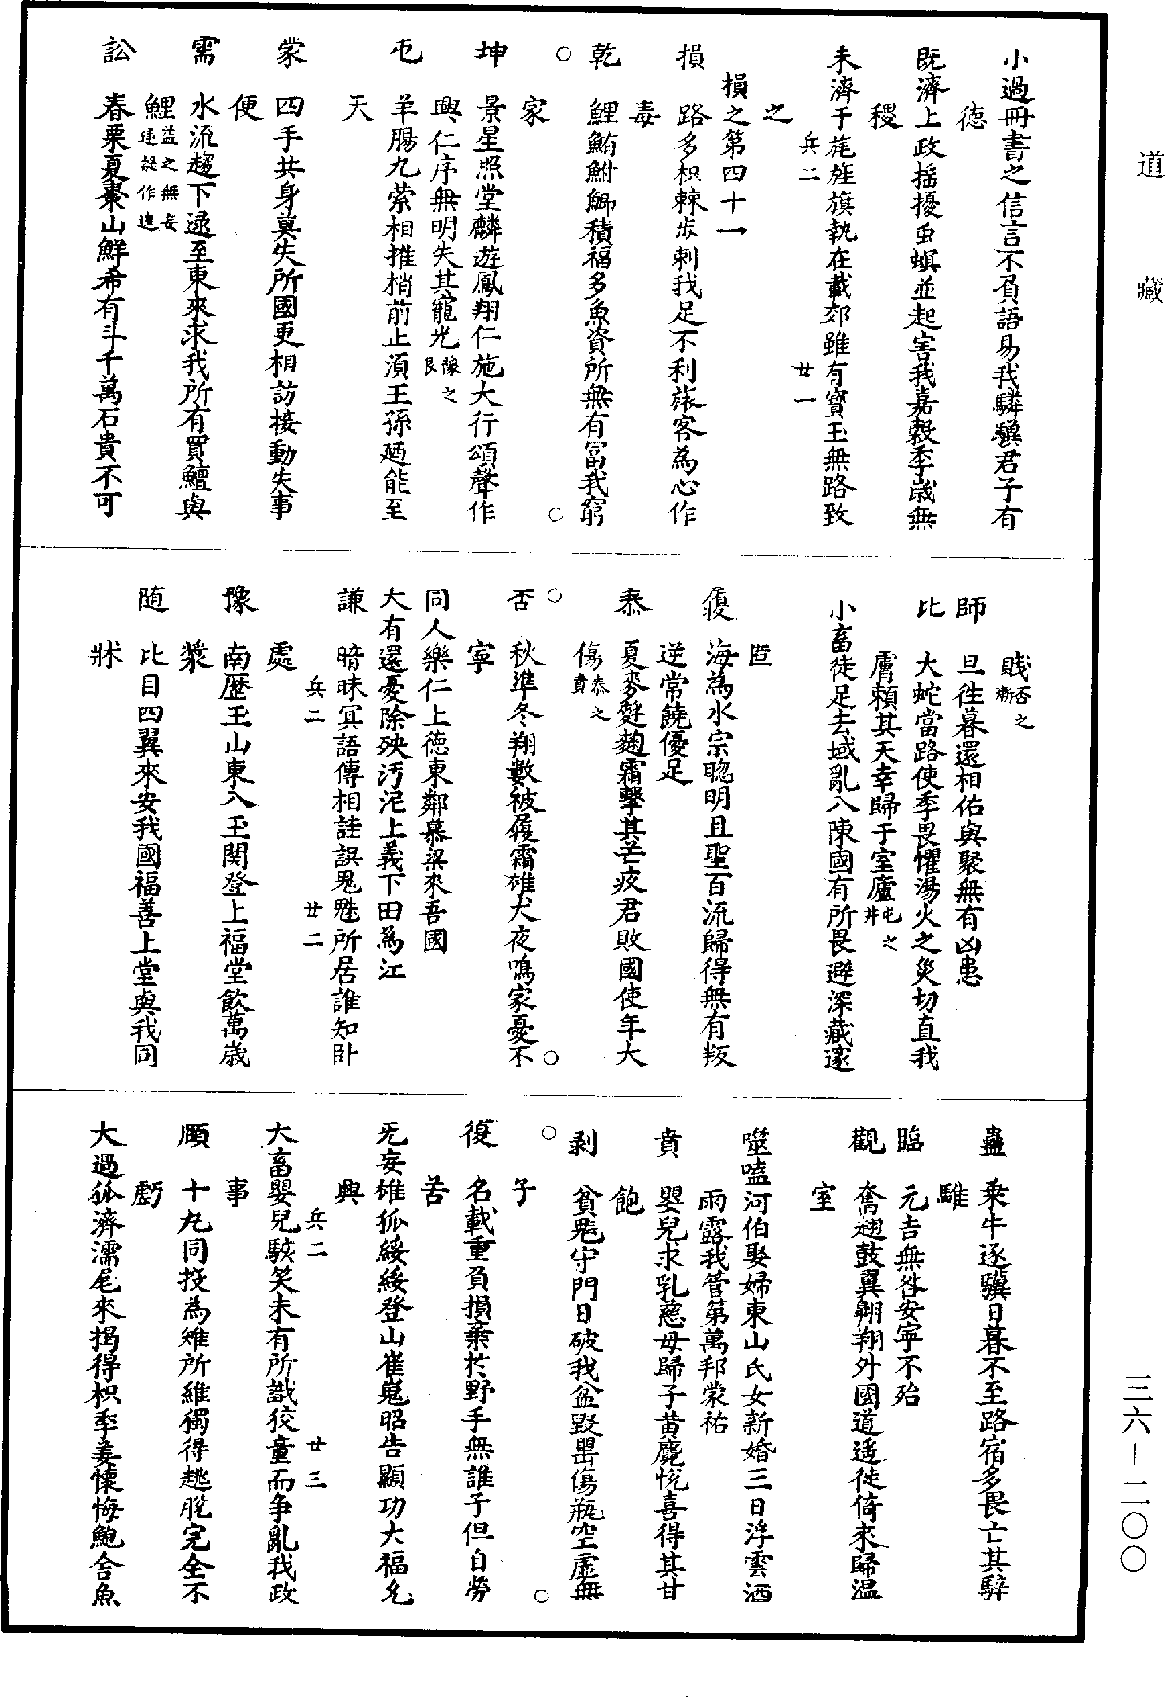 道藏
小過冊書之信言不負語易我驎驥君子有
德
既濟上政搖擾虫螟並起害我嘉穀季歲無
稷
未濟千旄旌旗執在載郊雖有寶玉無路致
之
兵二 廿一
損之第四十一
損 路多枳棘步刺我足不利旅客為心作
毒
乾 鯉鮪鮒鯽積福多魚資所無有富我窮
家
坤 景星照堂麟遊鳳翔仁施大行頌聲作
興仁序無明失其寵光豫之艮
屯 羊腸九縈相推稍前止須王孫廼能至
天
蒙 四手共身莫失所國更相訪接動失事
便
需 水流趨下遠至東來求我所有買鱣與
鯉益之無妄
訟 春栗夏棗山鮮希有斗千萬石貴不可
賤否之漸
師 旦往暮還相佑與聚無有凶患
比 大蛇當路使季畏懼湯火之災切直我
膚賴其天幸歸于室廬屯之井
小畜徒足去域亂入陳國有所畏避深藏邃
匿
履 海為水宗聰明且聖百流歸得無有叛
逆常饒優足
泰 夏麥麰麴霜擊其芒疫君敗國使年大
傷恭之賁
否 秋準冬翔數被履霜雄犬夜鳴家憂不
寧
同人樂仁上德東鄰慕梁來吾國
大有還憂除殃汚泥上義下田為江
兵二 廿二
謙 暗昧冥語傳相詿誤鬼魅所居誰知卧
處
豫 南歷玉山東入玉関登上福堂飲萬歲
漿
随 比目四翼來安我國福善上堂與我同
牀
蠱 乘牛逐驥日暮不至路宿多畏亡其騂
騅
臨 元吉無咎安寧不殆
觀 奮翅鼓翼翱翔外國逍遙徙倚來歸温
室
噬嗑河伯娶婦東山氏女新婚三日浮雲洒
雨露我管第萬邦蒙祐
賁 嬰兒求乳慈母歸子黄麑悅喜得其甘
飽
剥 貧鬼守門日破我盆毀罌傷瓶空虛無
子
復 名載重負損棄扵野手無誰子但自勞
苦
无妄雄狐綏綏登山崔嵬昭告顯功大福允
興
兵二 廿三
大畜嬰兒駭笑未有所識狡童而争亂我政
事
頤 十九同投為雉所維獨得逃脫完全不
虧
大過狐濟濡尾來搗得枳季姜懷悔鮑舍魚
三六—二〇〇